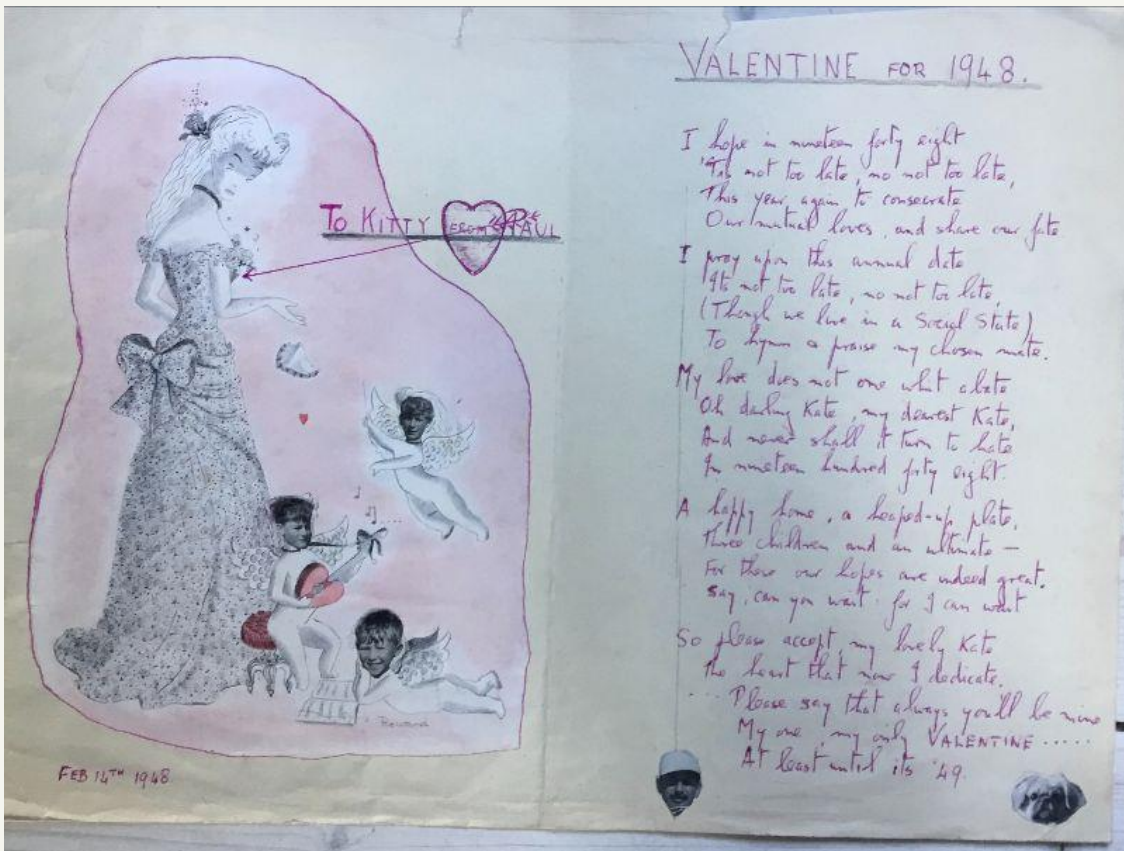 TO KITTY FROM PAUL
FEB 14TH 1948
VALENTINE FOR 1948.
I hope in nineteen forty eight
'Tis not too late, no not too late,
This year again to consecrate
Our mutual loves, and share our fate
I pray upon this annual date
Its not too late, no not too late,
(Though we live in a Social State)
To hymn a praise my chosen mate.
My love does not one whit abate
Oh darling Kate, my dearest Kate,
And never shall it turn to hate
In nineteen hundred forty eight.
A happy home, a heaped-up plate,
Three children and an ultimate —
For these our hopes are indeed great.
Say, can you wait for I can wait
So please accept, my lovely Kate
The heart that now I dedicate.
.... Please say that always you'll be mine
My one, my only VALENTINE .....
At least until its '49.